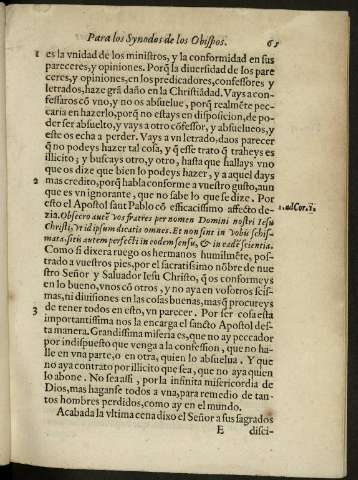 Para los Synodos de los Obispos. 61
1 es la vnidad de los ministros, y la conformidad en sus
pareceres, y opiniones. Porq̃ la diuersidad de los pare
ceres, y opiniones, en los predicadores, confessores y
letrados, haze grã daño en la Christiãdad. Vays a con-
fessaros cõ vno, y no os absuelue, porq̃ realmẽte pec-
caria en hazerlo, porq̃ no estays en disposicion, de po-
der ser absuelto, y vays a otro cõfessor, y absuelueos, y
este os echa a perder. Vays a vn letrado, daos parecer
q̃ no podeys hazer tal cosa, y q̃ esse trato q̃ traheys es
illicito; y buscays otro, y otro, hasta que hallays vno
que os dize que bien lo podeys hazer, y a aquel days
2 mas credito, porq̃ habla conforme a vuestro gusto, aun
que es vn ignorante, que no sabe lo que se dize. Por
esto el Apostol sant Pablo cõ efficacissimo affecto de- 1. ad Cor. 1.
zia. Obsecro autẽ vos fratres per nomen Domini nostri Iesu
Christi, vt idipsum dicatis omnes. Et non sint in vobis schis-
mata: sitis autem perfecti in eodem sensu, & in eadẽ scientia.
Como si dixera ruego os hermanos humilmẽte, pos-
trado a vuestros pies, por el sacratissimo nõbre de nue
stro Señor y Saluador Iesu Christo, q̃ os conformeys
en lo bueno, vnos cõ otros, y no aya en vosotros scis-
mas, ni diuisiones en las cosas buenas, mas q̃ procureys
3 de tener todos en esto, vn parecer. Por ser cosa esta
importantissima nos la encarga el sancto Apostol des-
ta manera. Grandissima miseria es, que no ay peccador
por indispuesto que venga a la confession, que no ha-
lle en vna parte, o en otra, quien lo absuelua. Y que
no aya contrato por illicito que sea, que no aya quien
lo abone. No sea assi, por la infinita misericordia de
Dios, mas haganse todos a vna, para remedio de tan-
tos hombres perdidos, como ay en el mundo.
Acabada la vltima cena dixo el Señor a sus sagrados
E disci-